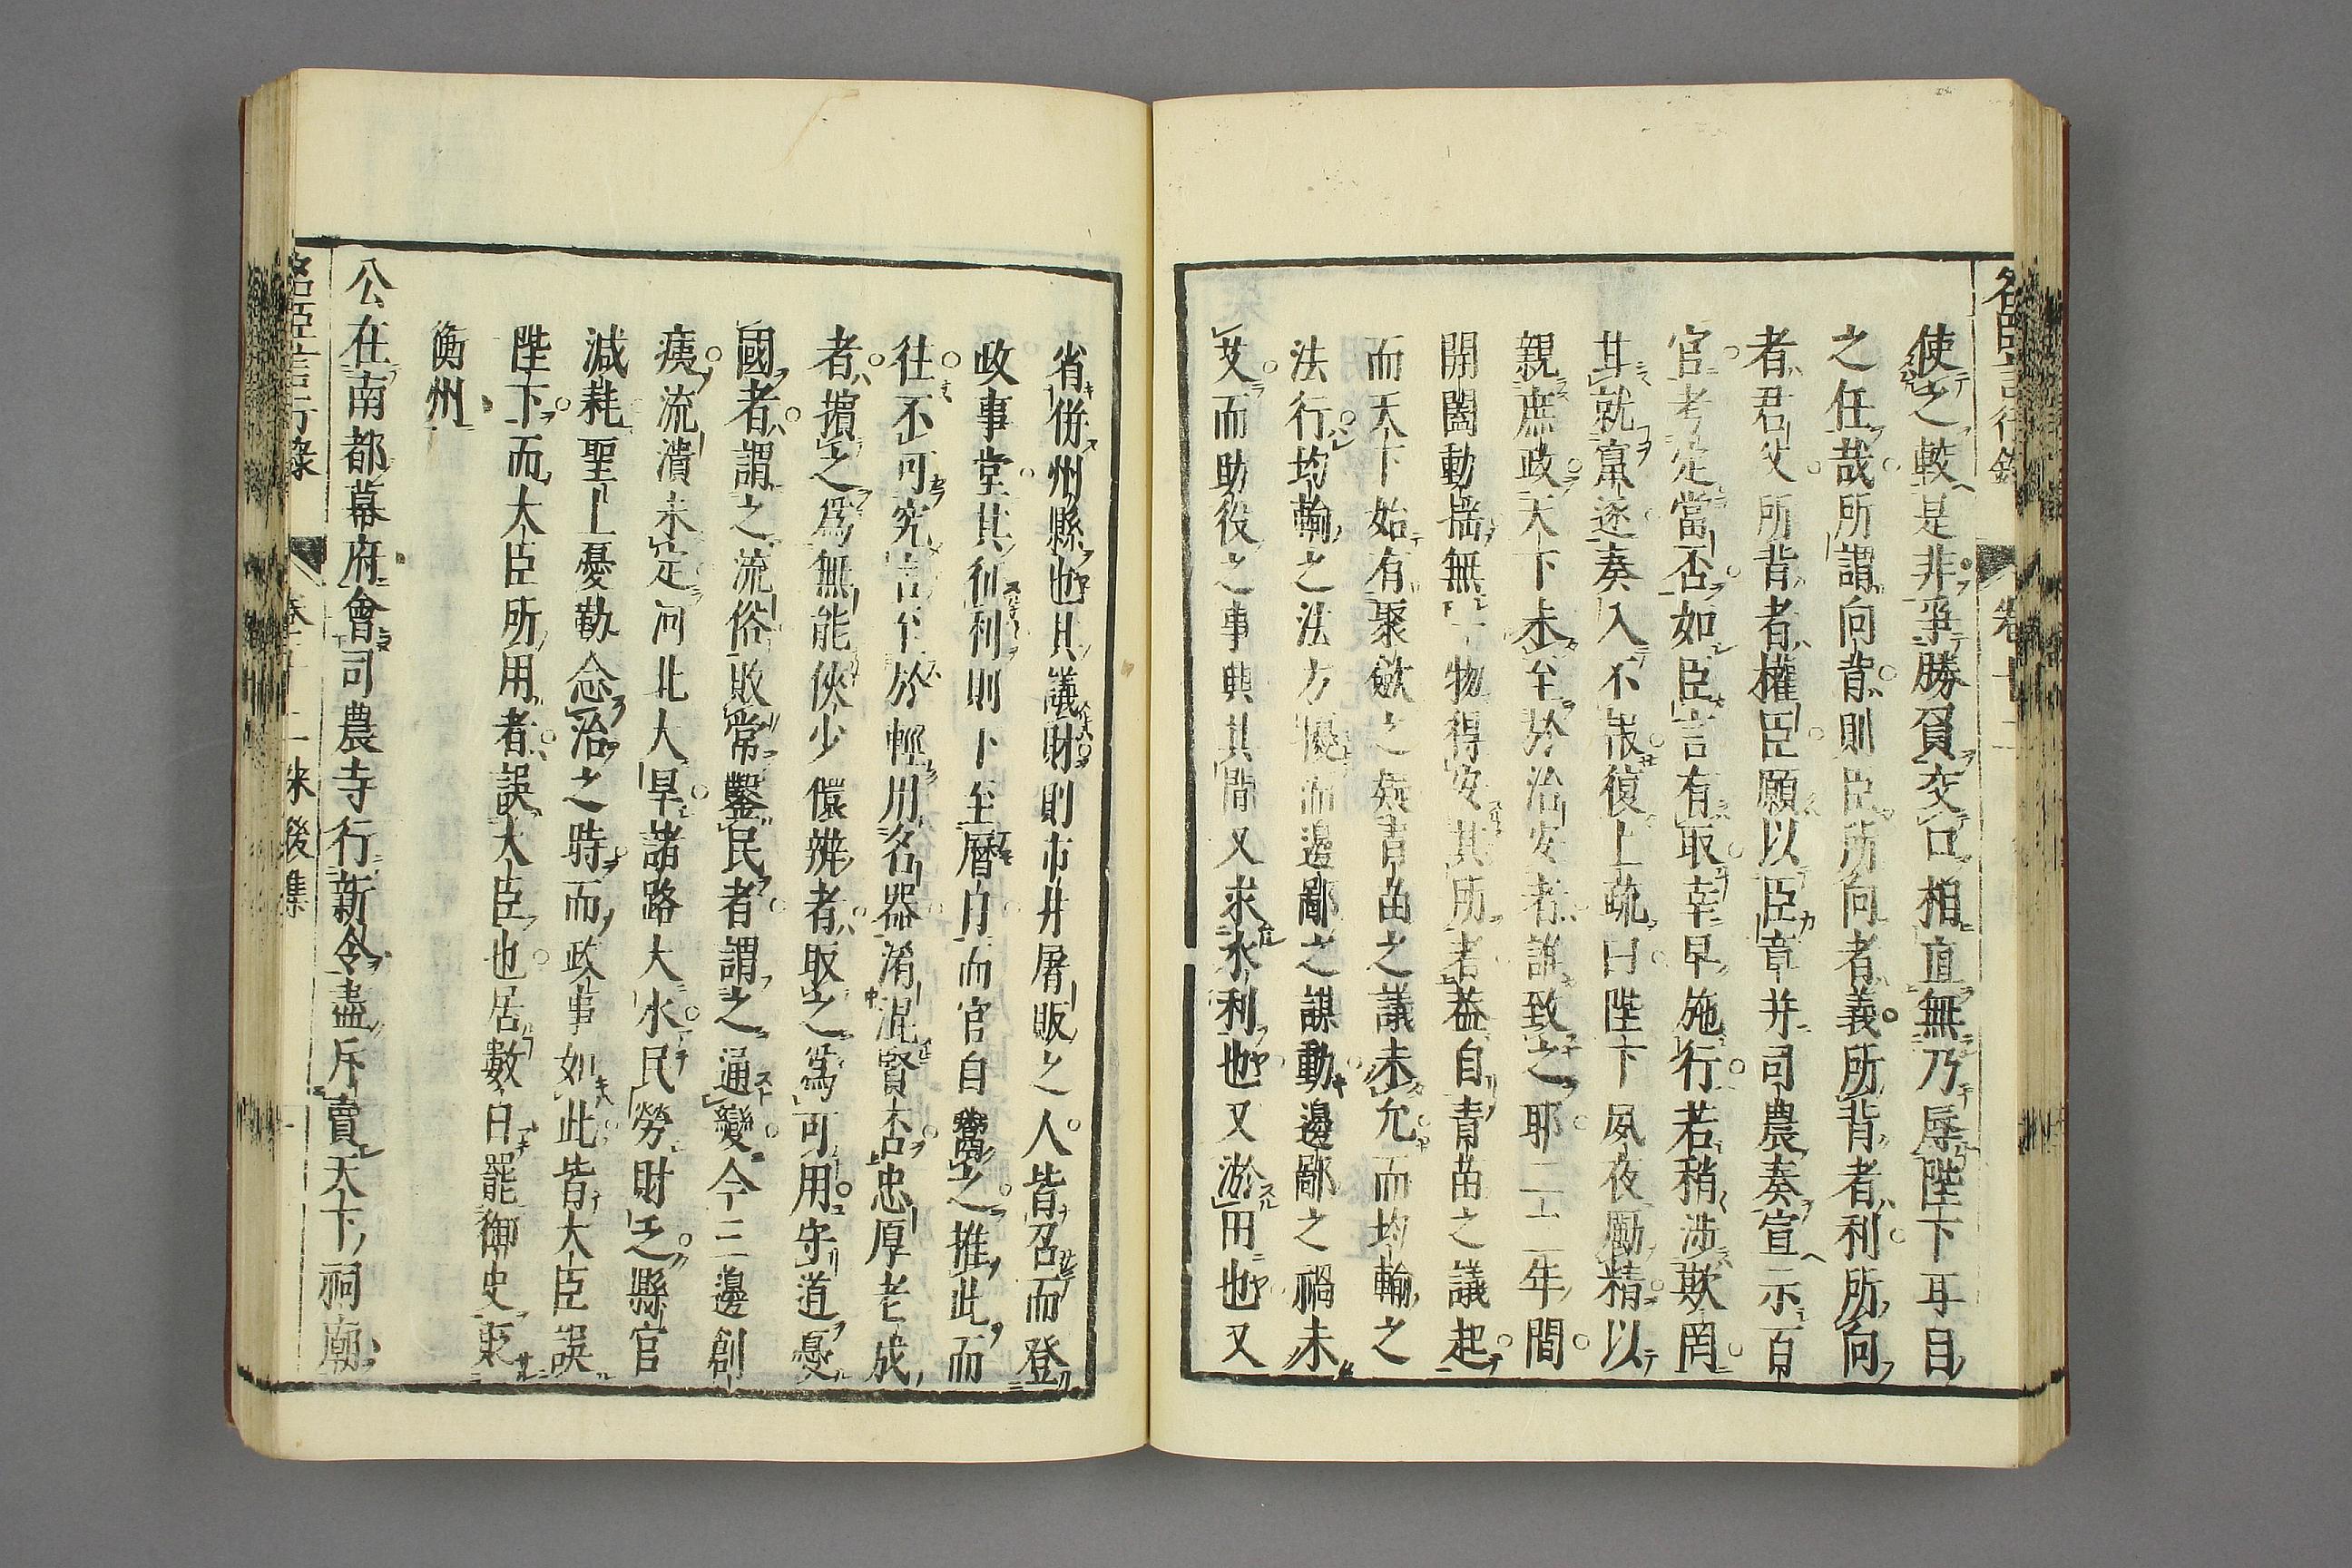 名臣言行錄 卷十二
使之較是非爭勝負交口相直無乃辱陛下耳目
之任哉所謂向背則臣所向者義所背者利所向
者君父所背者權臣願以臣章并司農奏宣示百
官考定當否如臣言有取幸早施行若稍涉欺罔
其就竄逐奏入不報復上疏曰陛下夙夜勵精以
親庶政天下未至於治安者誰致之耶二三年間
開闔動搖無一物得安其所者蓋自青苗之議起
而天下始有聚斂之疑青苗之議未允而均輸之
法行均輸之法方擾而邊鄙之謀動邊鄙之禍未
艾而助役之事興其間又求水利也又淤田也又
省併州縣也其議財則市井屠販之人皆召而登
政事堂其征利則下至曆日而官自鬻之推此而
往不可究言至於輕用名器淆混賢否忠厚老成
者擯之爲無能俠少儇辨者取之爲可用守道憂
國者謂之流俗敗常鑿民者謂之通變今三邊創
痍流潰未定河北大旱諸路大水民勞財乏縣官
減耗聖上憂勤念治之時而政事如此皆大臣誤
陛下而大臣所用者誤大臣也居數日罷御史
衡州
公在南都幕府會司農寺行新令盡斥賣天下祠廟
名臣言行錄 卷十二 宋後集